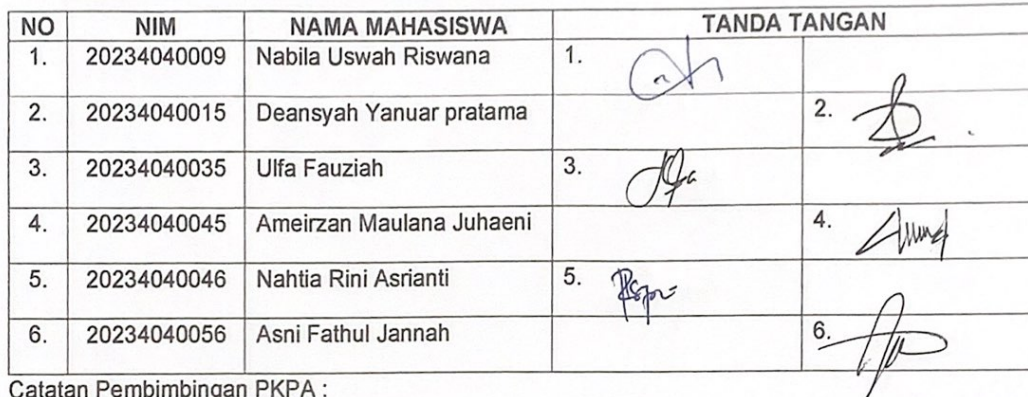 NO NIM NAMA MAHASISWA TANDA TANGAN
1. 20234040009 Nabila Uswah Riswana 1.
2. 20234040015 Deansyah Yanuar pratama 2.
3. 20234040035 Ulfa Fauziah 3.
4. 20234040045 Ameirzan Maulana Juhaeni 4.
5. 20234040046 Nahtia Rini Asrianti 5.
6. 20234040056 Asni Fathul Jannah 6.
Catatan Pembimbingan PKPA :